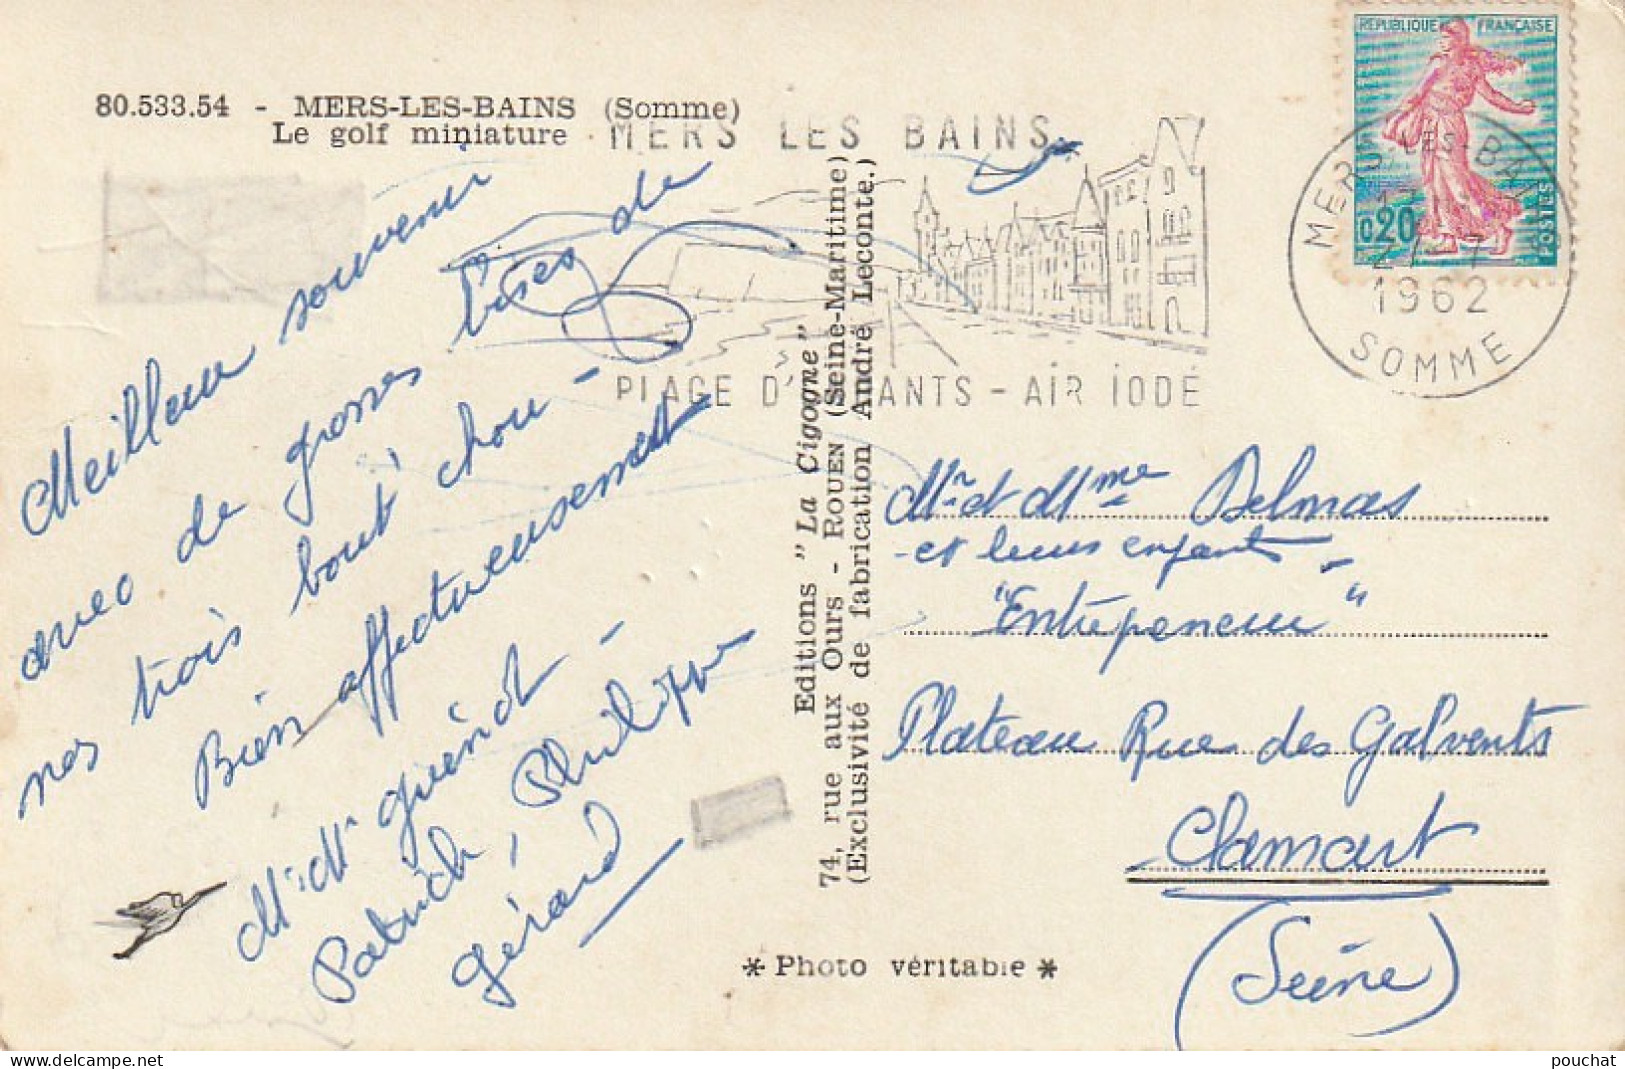 80.533.54 - MERS-LES-BAINS (Somme)
Le golf miniature
MERS LES BAINS
PLAGE D' ANTS - AIR IODÉ
REPUBLIQUE FRANÇAISE
0,20
POSTES
MERS-LES-BA
17
27-7
1962
SOMME
Meilleur souvenir
avec de grosses bises de
nos trois bout'chou -
Bien affectueusement
Mr Mr Guéridt -
Patrick, Philippe
Gérard
Editions "La Cigogne"
74, rue aux Ours - ROUEN (Seine-Maritime)
(Exclusivité de fabrication André Leconte.)
Mr et Mme Delmas
et leurs enfants -
"Entrepeneur"
Plateau Rue des Galvents
Clamart
(Seine)
* Photo véritable *
www.delcampe.net
pouchat